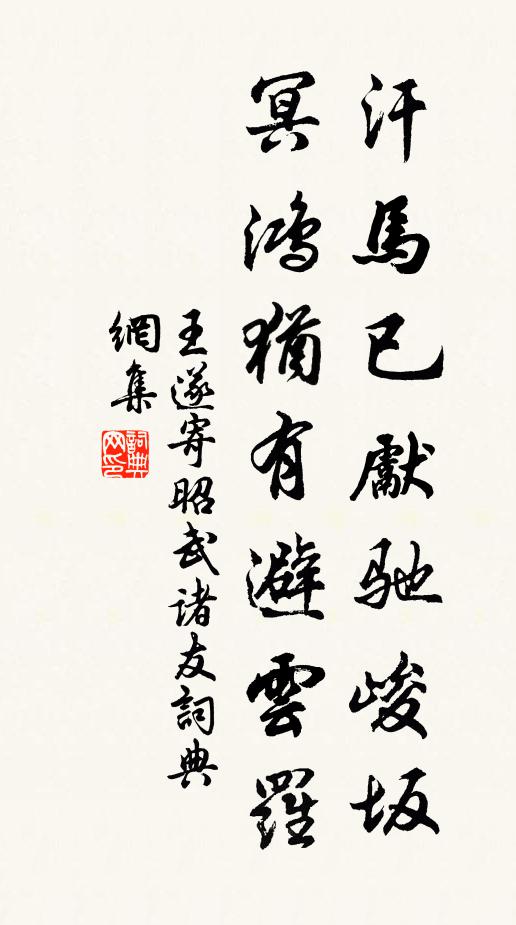 汗馬已厭馳峻坂
冥鴻猶有避雲羅
王遂寄昭武諸友詞典
網集
詞典
网印